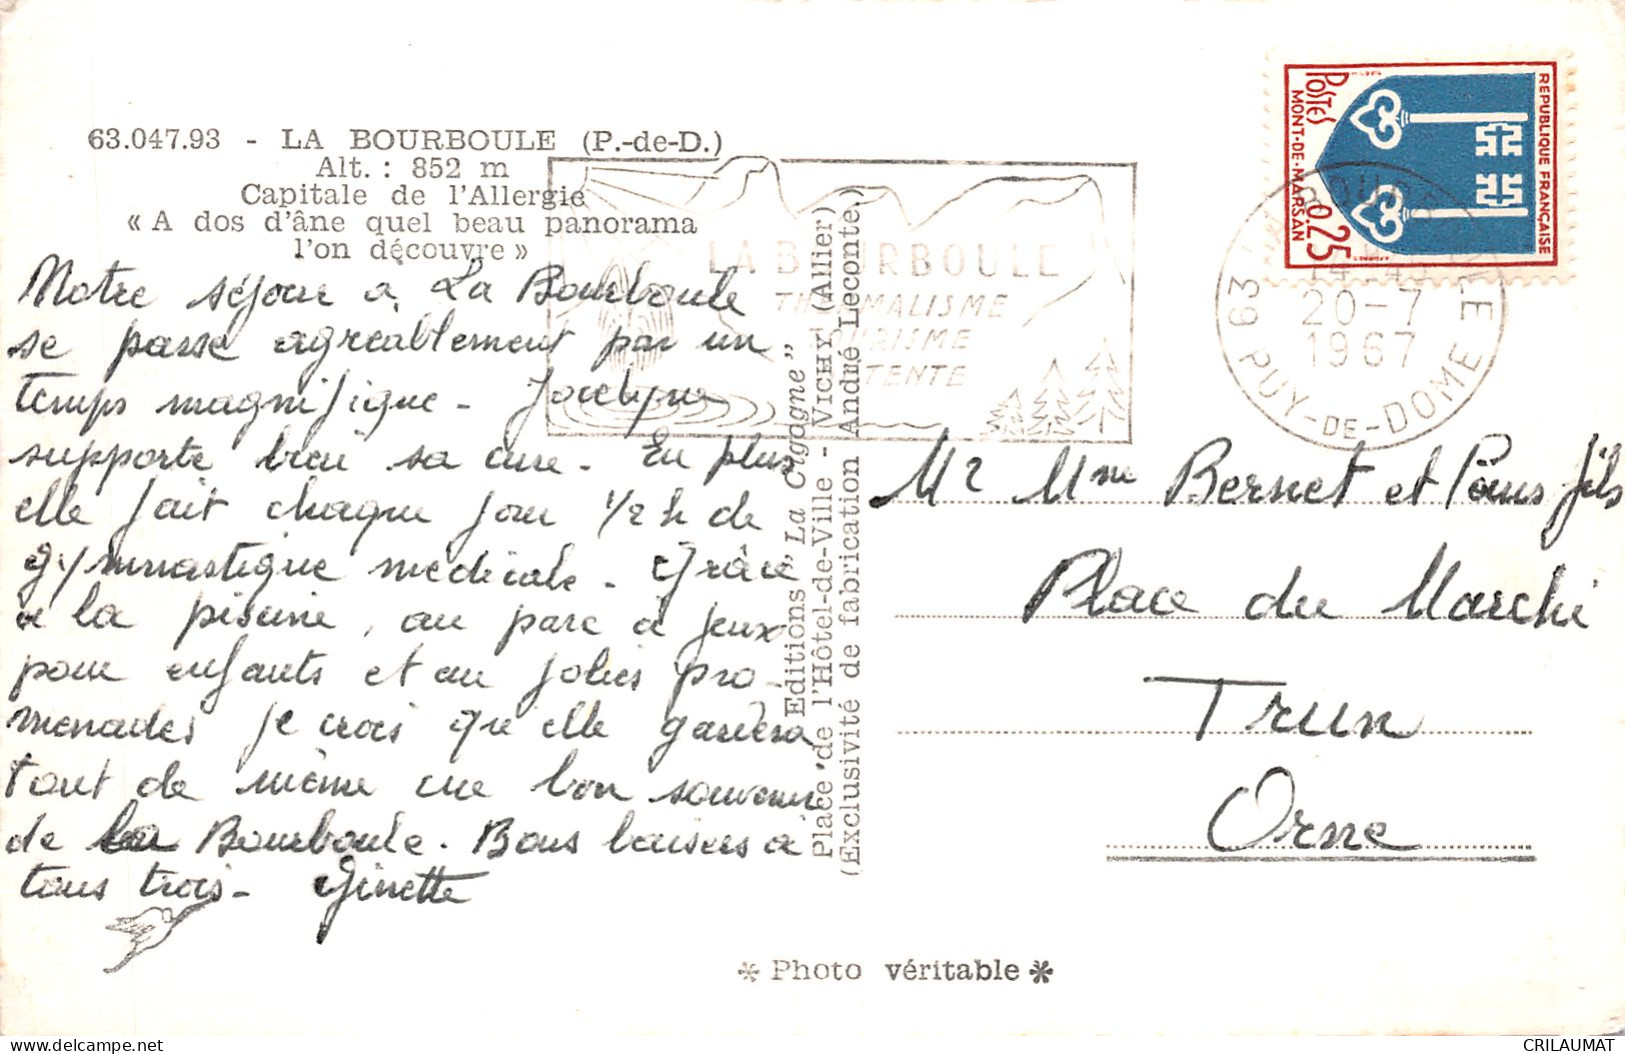 63.047.93 - LA BOURBOULE (P.-de-D.)
Alt. : 852 m
Capitale de l'Allergie
« A dos d'âne quel beau panorama
l'on découvre »
Notre séjour à La Bourboule
se passe agréablement par un
temps magnifique - Jocelyne
supporte bien sa cure - En plus
elle fait chaque jour 1/2 h de
gymnastique médicale - Grâce
à la piscine, au parc à jeux
pour enfants et au jolies pro-
menades je crois que elle gardera
tout de même un bon souvenir
de La Bourboule. Bons baisers à
tous trois - Ginette
Editions "La Cigogne"
Place de l'Hôtel-de-Ville - VICHY (Allier)
(Exclusivité de fabrication André Leconte.)
LA BOURBOULE
THERMALISME
TOURISME
DETENTE
REPUBLIQUE FRANÇAISE
POSTES 0.25
MONT-DE-MARSAN
LA BOURBOULE
14H45
20-7
1967
63 PUY-DE-DOME
Mr Mme Bernet et fils
Place du Marché
Trun
Orne
* Photo véritable *
delcampe.net
CRILAUMAT